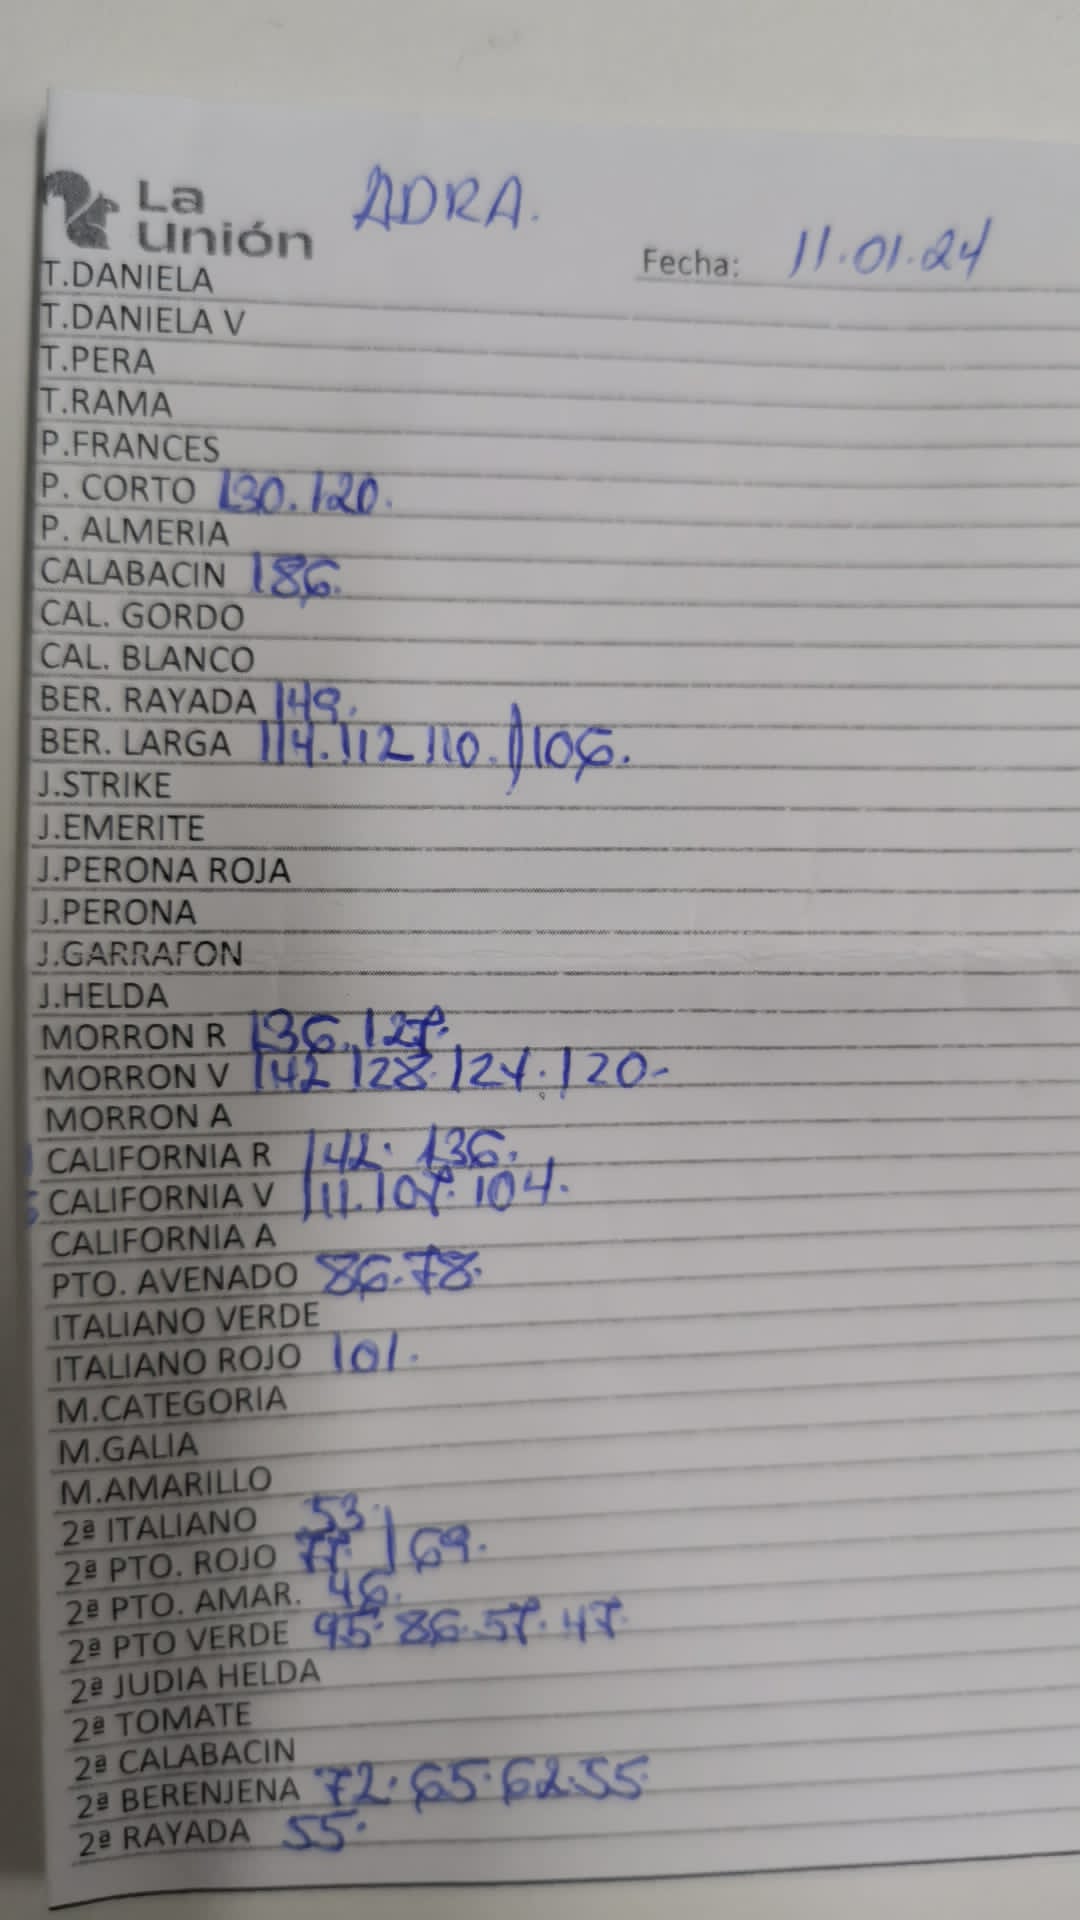 La Unión ADRA.
Fecha: 11.01.24
T.DANIELA
T.DANIELA V
T.PERA
T.RAMA
P.FRANCES
P. CORTO 130. 120.
P. ALMERIA
CALABACIN 186.
CAL. GORDO
CAL. BLANCO
BER. RAYADA 149.
BER. LARGA 114. 112 110. | 106.
J.STRIKE
J.EMERITE
J.PERONA ROJA
J.PERONA
J.GARRAFON
J.HELDA
MORRON R 136. 127.
MORRON V 142 128. 124. 120-
MORRON A
CALIFORNIA R 142. 136.
CALIFORNIA V 111. 107. 104.
CALIFORNIA A
PTO. AVENADO 86. 78.
ITALIANO VERDE
ITALIANO ROJO 101.
M.CATEGORIA
M.GALIA
M.AMARILLO
2ª ITALIANO 53.
2ª PTO. ROJO 77. | 69.
2ª PTO. AMAR. 46.
2ª PTO VERDE 95. 86. 57. 47.
2ª JUDIA HELDA
2ª TOMATE
2ª CALABACIN
2ª BERENJENA 72. 65. 62. 55.
2ª RAYADA 55.